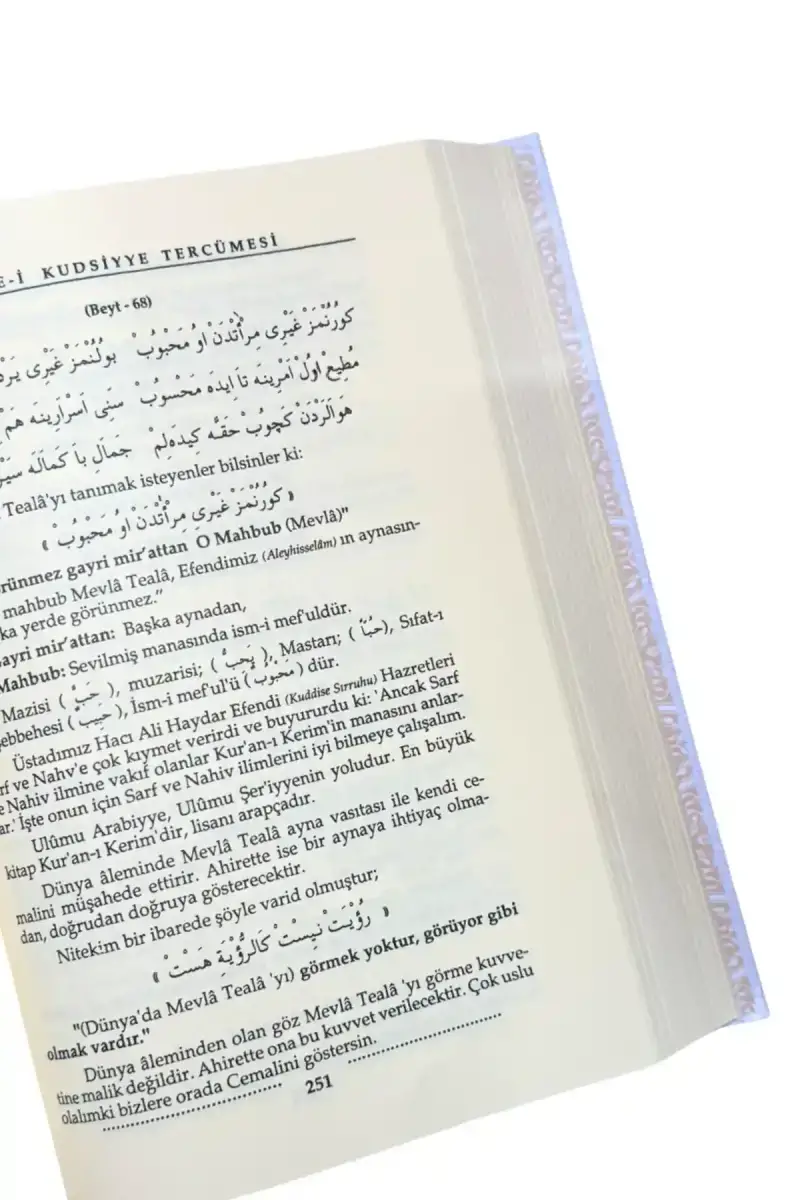 E-İ KUDSİYYE TERCÜMESİ
(Beyt - 68)
كورُنْمَزْ غَيْرِى مِرْاٰتْدَنْ اوُ مَحْبُوبْ بولُنْمَزْ غَيْرِى يَرْ
مُطِيعْ اوُلْ اَمْرِينَه تَا ايدَه مَحْسُوبْ سَنِى اَسْرَارِينَه هَمْ
هَوَالَرْدَنْ كَچُوبْ حَقَّه كِيدَه لِمْ جَمَالِ بَا كَمَالَه
Tealâ'yı tanımak isteyenler bilsinler ki:
« كورُنْمَزْ غَيْرِى مِرْاٰتْدَنْ اوُ مَحْبُوبْ »
rünmez gayri mir'attan O Mahbub (Mevlâ)"
mahbub Mevlâ Tealâ, Efendimiz (Aleyhisselâm) ın aynasın-
ka yerde görünmez."
ayri mir'attan: Başka aynadan,
Mahbub: Sevilmiş manasında ism-i mef'uldür.
Mazisi ( حَبَّ ), muzarisi; ( يَحِبُّ ), Mastarı; ( حُبًّا ), Sıfat-ı
ebbehesi ( حَبِيبٌ ), İsm-i mef'ul'ü ( مَحْبُوبٌ ) dür.
Üstadımız Hacı Ali Haydar Efendi (Kuddise Sırruhu) Hazretleri
rf ve Nahv'e çok kıymet verirdi ve buyururdu ki: 'Ancak Sarf
e Nahiv ilmine vakıf olanlar Kur'an-ı Kerim'in manasını anlar-
ar.' İşte onun için Sarf ve Nahiv ilimlerini iyi bilmeye çalışalım.
Ulûmu Arabiyye, Ulûmu Şer'iyyenin yoludur. En büyük
kitap Kur'an-ı Kerim'dir, lisanı arapçadır.
Dünya âleminde Mevlâ Tealâ ayna vasıtası ile kendi ce-
malini müşahede ettirir. Ahirette ise bir aynaya ihtiyaç olma-
dan, doğrudan doğruya gösterecektir.
Nitekim bir ibarede şöyle varid olmuştur;
« رُؤْيَتْ نِيسْتْ كَالرُّؤْيَةِ هَسْتْ »
"(Dünya'da Mevlâ Tealâ 'yı) görmek yoktur, görüyor gibi
olmak vardır."
Dünya âleminden olan göz Mevlâ Tealâ 'yı görme kuvve-
tine malik değildir. Ahirette ona bu kuvvet verilecektir. Çok uslu
olalımki bizlere orada Cemalini göstersin.
251